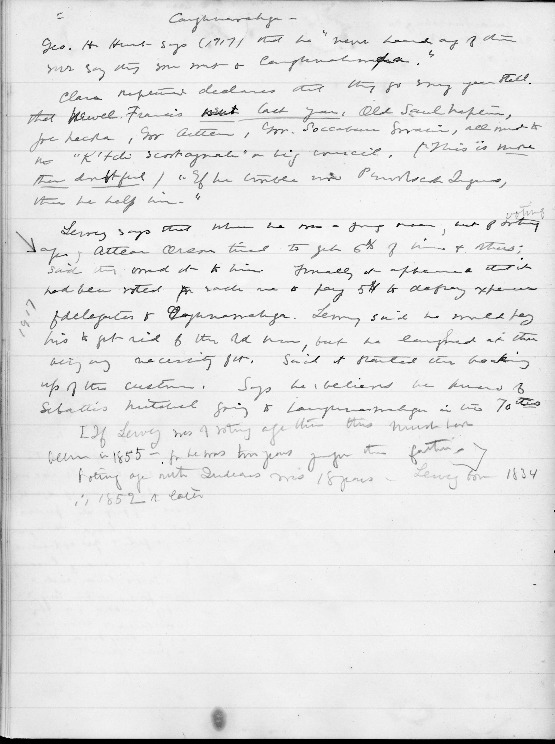 Caughnawaga -
Geo. H Hunt says (1917) that he "never heard any of them
ever say they ever went to Caughnawaga."
Clara Neptune declares that they go every year still.
that Newell Francis went last year, Old Saul Neptune,
Joe, Gov Attean, Gov. Soccabesin, all went to
"K'tchi" a big council. (This is more
than doubtful) "If he trouble with Penobscot Injuns,
then he half him."
Lewey says that when he was a young man, but of voting
age, Attean Orson tried to get 5$ of him & others;
said they owed it to him. Finally it appeared that it
had been voted for each one to pay 5$ to defray expenses
of delegates to Caughnawaga. Lewey said he would pay
his to get rid of the old man, but he laughed at there
being any necessity for. Said it started the breaking
up of the custom. Says he believes he knew of
Sebattis Mitchell going to Caughnawaga in the 70ties
1917
[If Lewey was of voting age then this must have
been in 1855 - for he was two years younger than father
Voting age with Indians was 18 years - Lewey born 1834
1852 or later